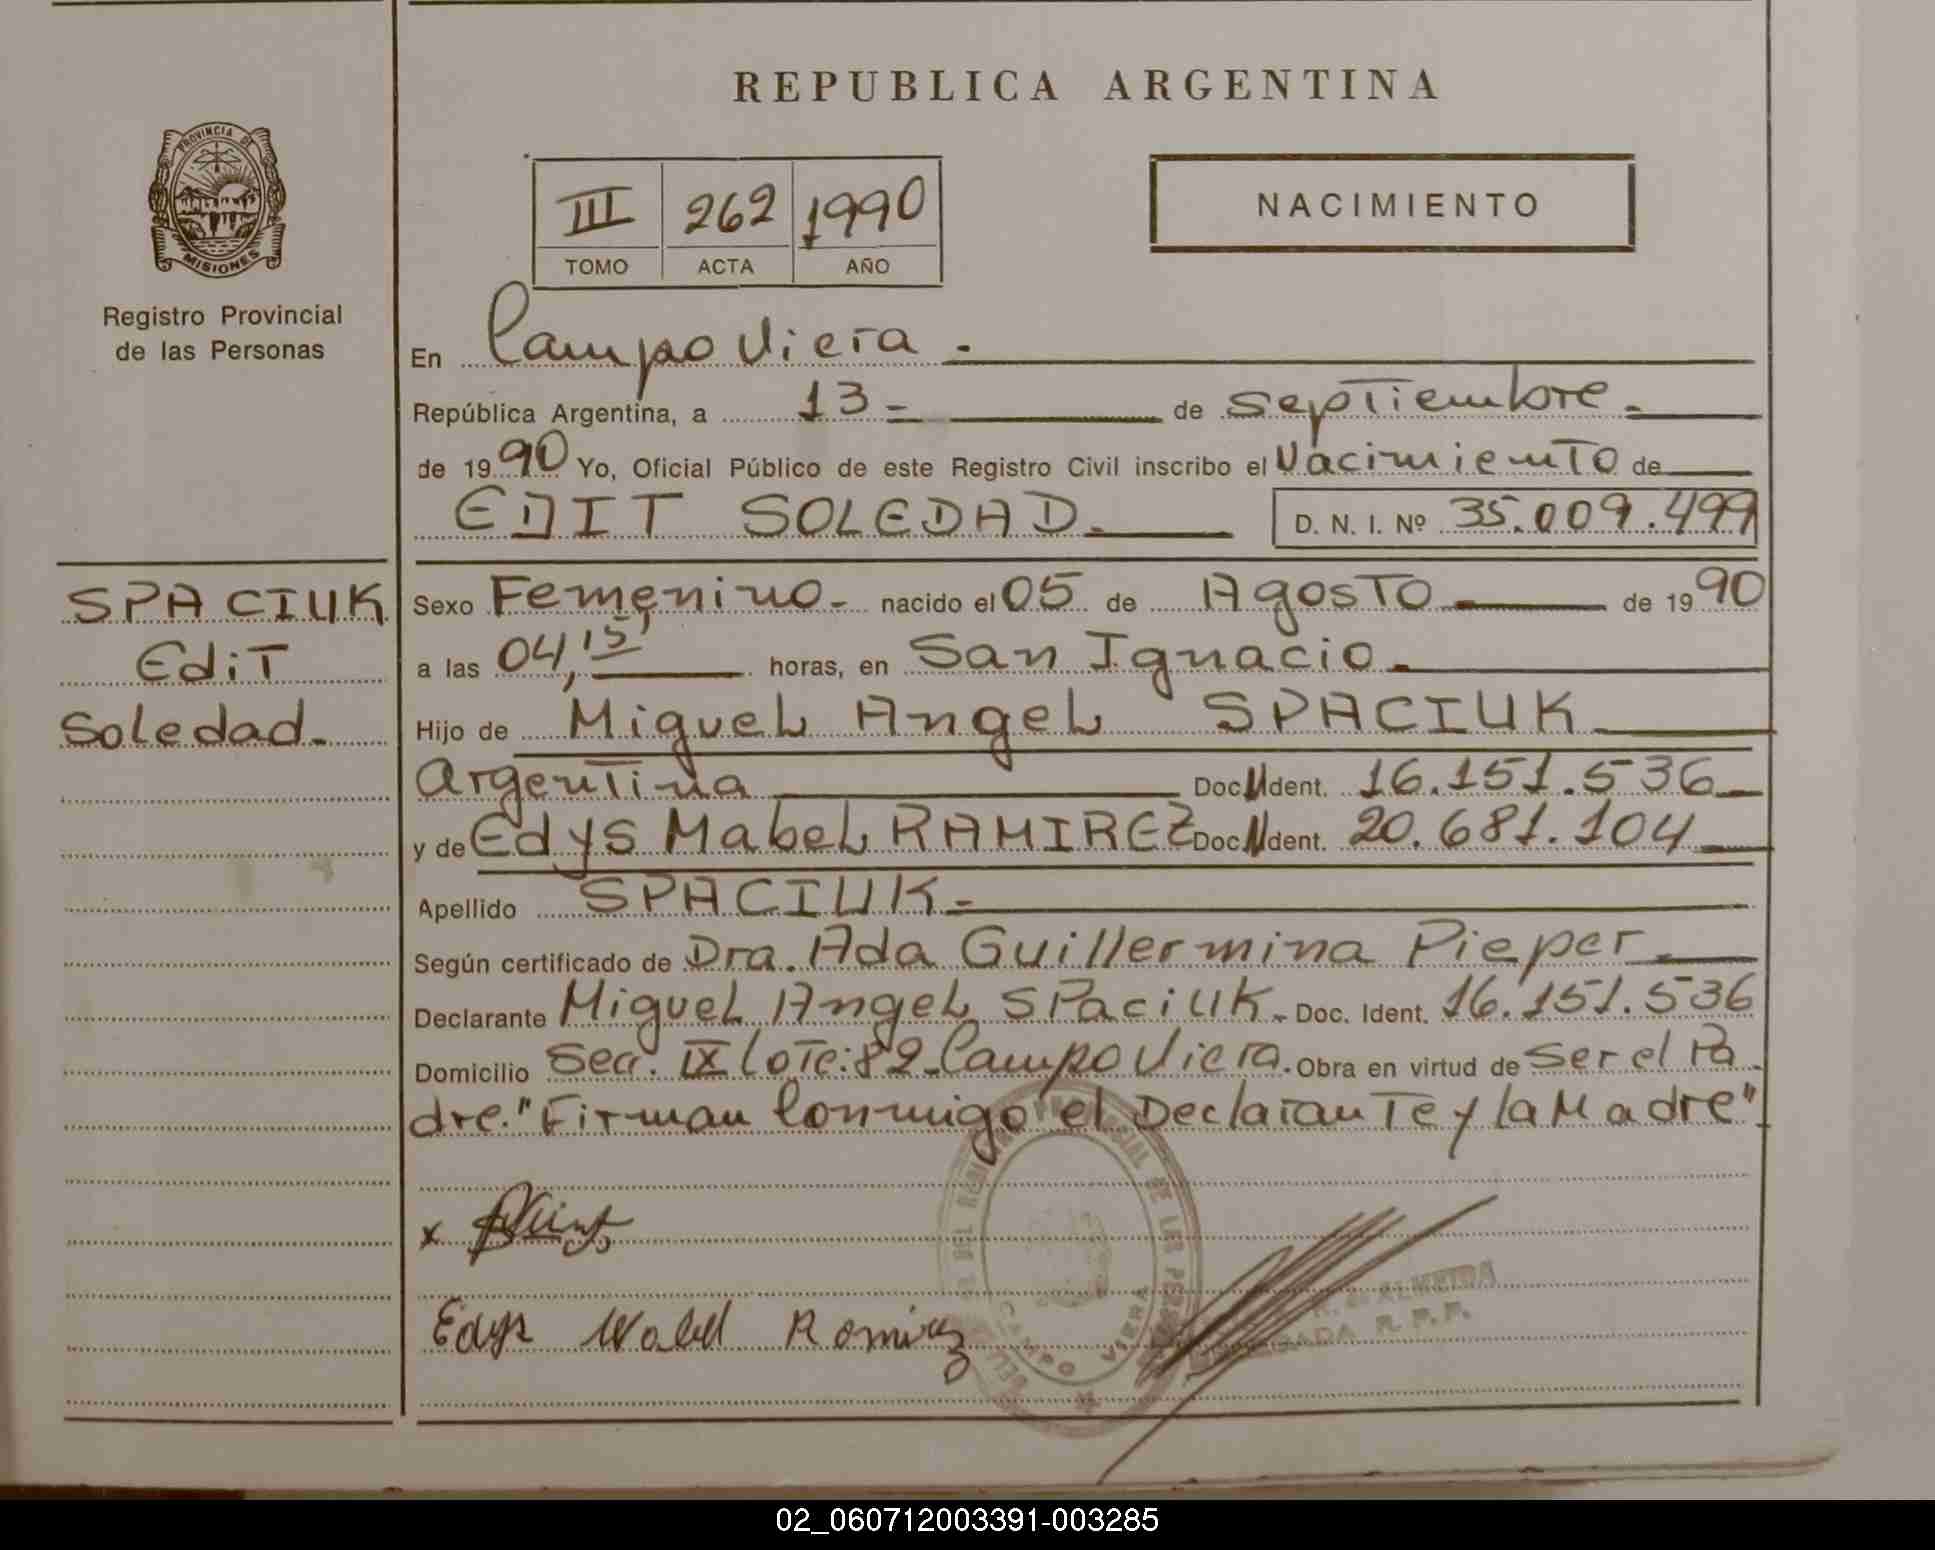 REPUBLICA ARGENTINA
PROVINCIA DE
MISIONES
Registro Provincial
de las Personas
III 262 1990
TOMO ACTA AÑO
NACIMIENTO
En Campo Viera.-
República Argentina, a 13- de septiembre.-
de 1990 Yo, Oficial Público de este Registro Civil inscribo el Nacimiento de
EDIT SOLEDAD.- D. N. I. Nº 35.009.499
SPACIUK
Edit
Soledad.-
Sexo Femenino.- nacido el 05 de Agosto de 1990
a las 04,15' horas, en San Ignacio.
Hijo de Miguel Angel SPACIUK
Argentina Doc. Ident. 16.151.536
y de Edys Mabel RAMIREZ Doc. Ident. 20.681.104
Apellido SPACIUK.-
Según certificado de Dra. Ada Guillermina Pieper.-
Declarante Miguel Angel SPaciUK.- Doc. Ident. 16.151.536
Domicilio Secc. IX Lote: 82- Campo Viera. Obra en virtud de ser el Pa
dre. "Firman Conmigo el Declarante y la Madre"
x
Edys Mabel Ramirez
CAMPO VIERA
ALMEIDA
R. P. P.
02_060712003391-003285